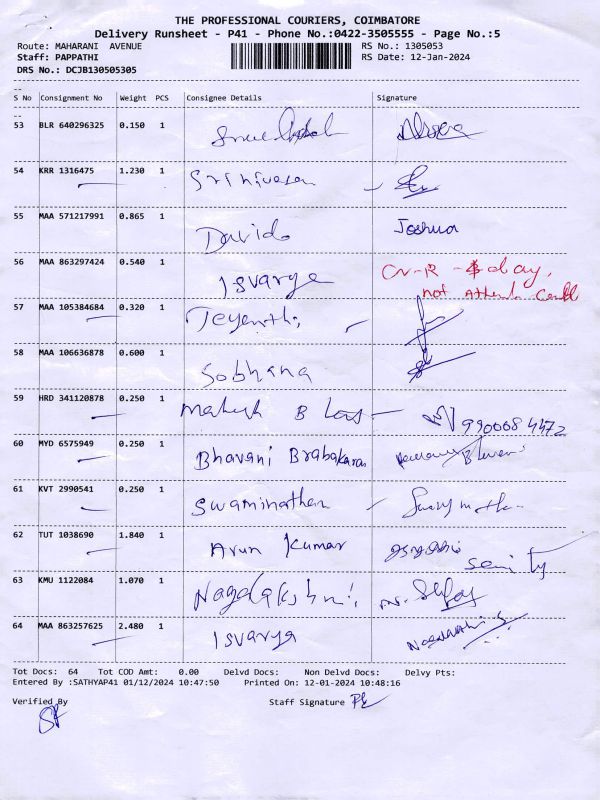 THE PROFESSIONAL COURIERS, COIMBATORE
Delivery Runsheet - P41 - Phone No.:0422-3505555 - Page No.:5
Route: MAHARANI AVENUE RS No.: 1305053
Staff: PAPPATHI RS Date: 12-Jan-2024
DRS No.: DCJB130505305
--
S No Consignment No Weight PCS Consignee Details Signature
--
53 BLR 640296325 0.150 1
54 KRR 1316475 1.230 1 Srinivasan
55 MAA 571217991 0.865 1 Davido Joshua
56 MAA 863297424 0.540 1 Isvarya day,
not
57 MAA 105384684 0.320 1 Jeyanthi
58 MAA 106636878 0.600 1 Sobhana
59 HRD 341120878 0.250 1 Mahesh B
60 MYD 6575949 0.250 1 Bhavani Brabakaran
61 KVT 2990541 0.250 1 Swaminathan
62 TUT 1038690 1.840 1 Arun Kumar
63 KMU 1122084 1.070 1 Nagalakshmi
64 MAA 863257625 2.480 1 Isvarya
Tot Docs: 64 Tot COD Amt: 0.00 Delvd Docs: Non Delvd Docs: Delvy Pts:
Entered By :SATHYAP41 01/12/2024 10:47:50 Printed On: 12-01-2024 10:48:16
Verified By Staff Signature